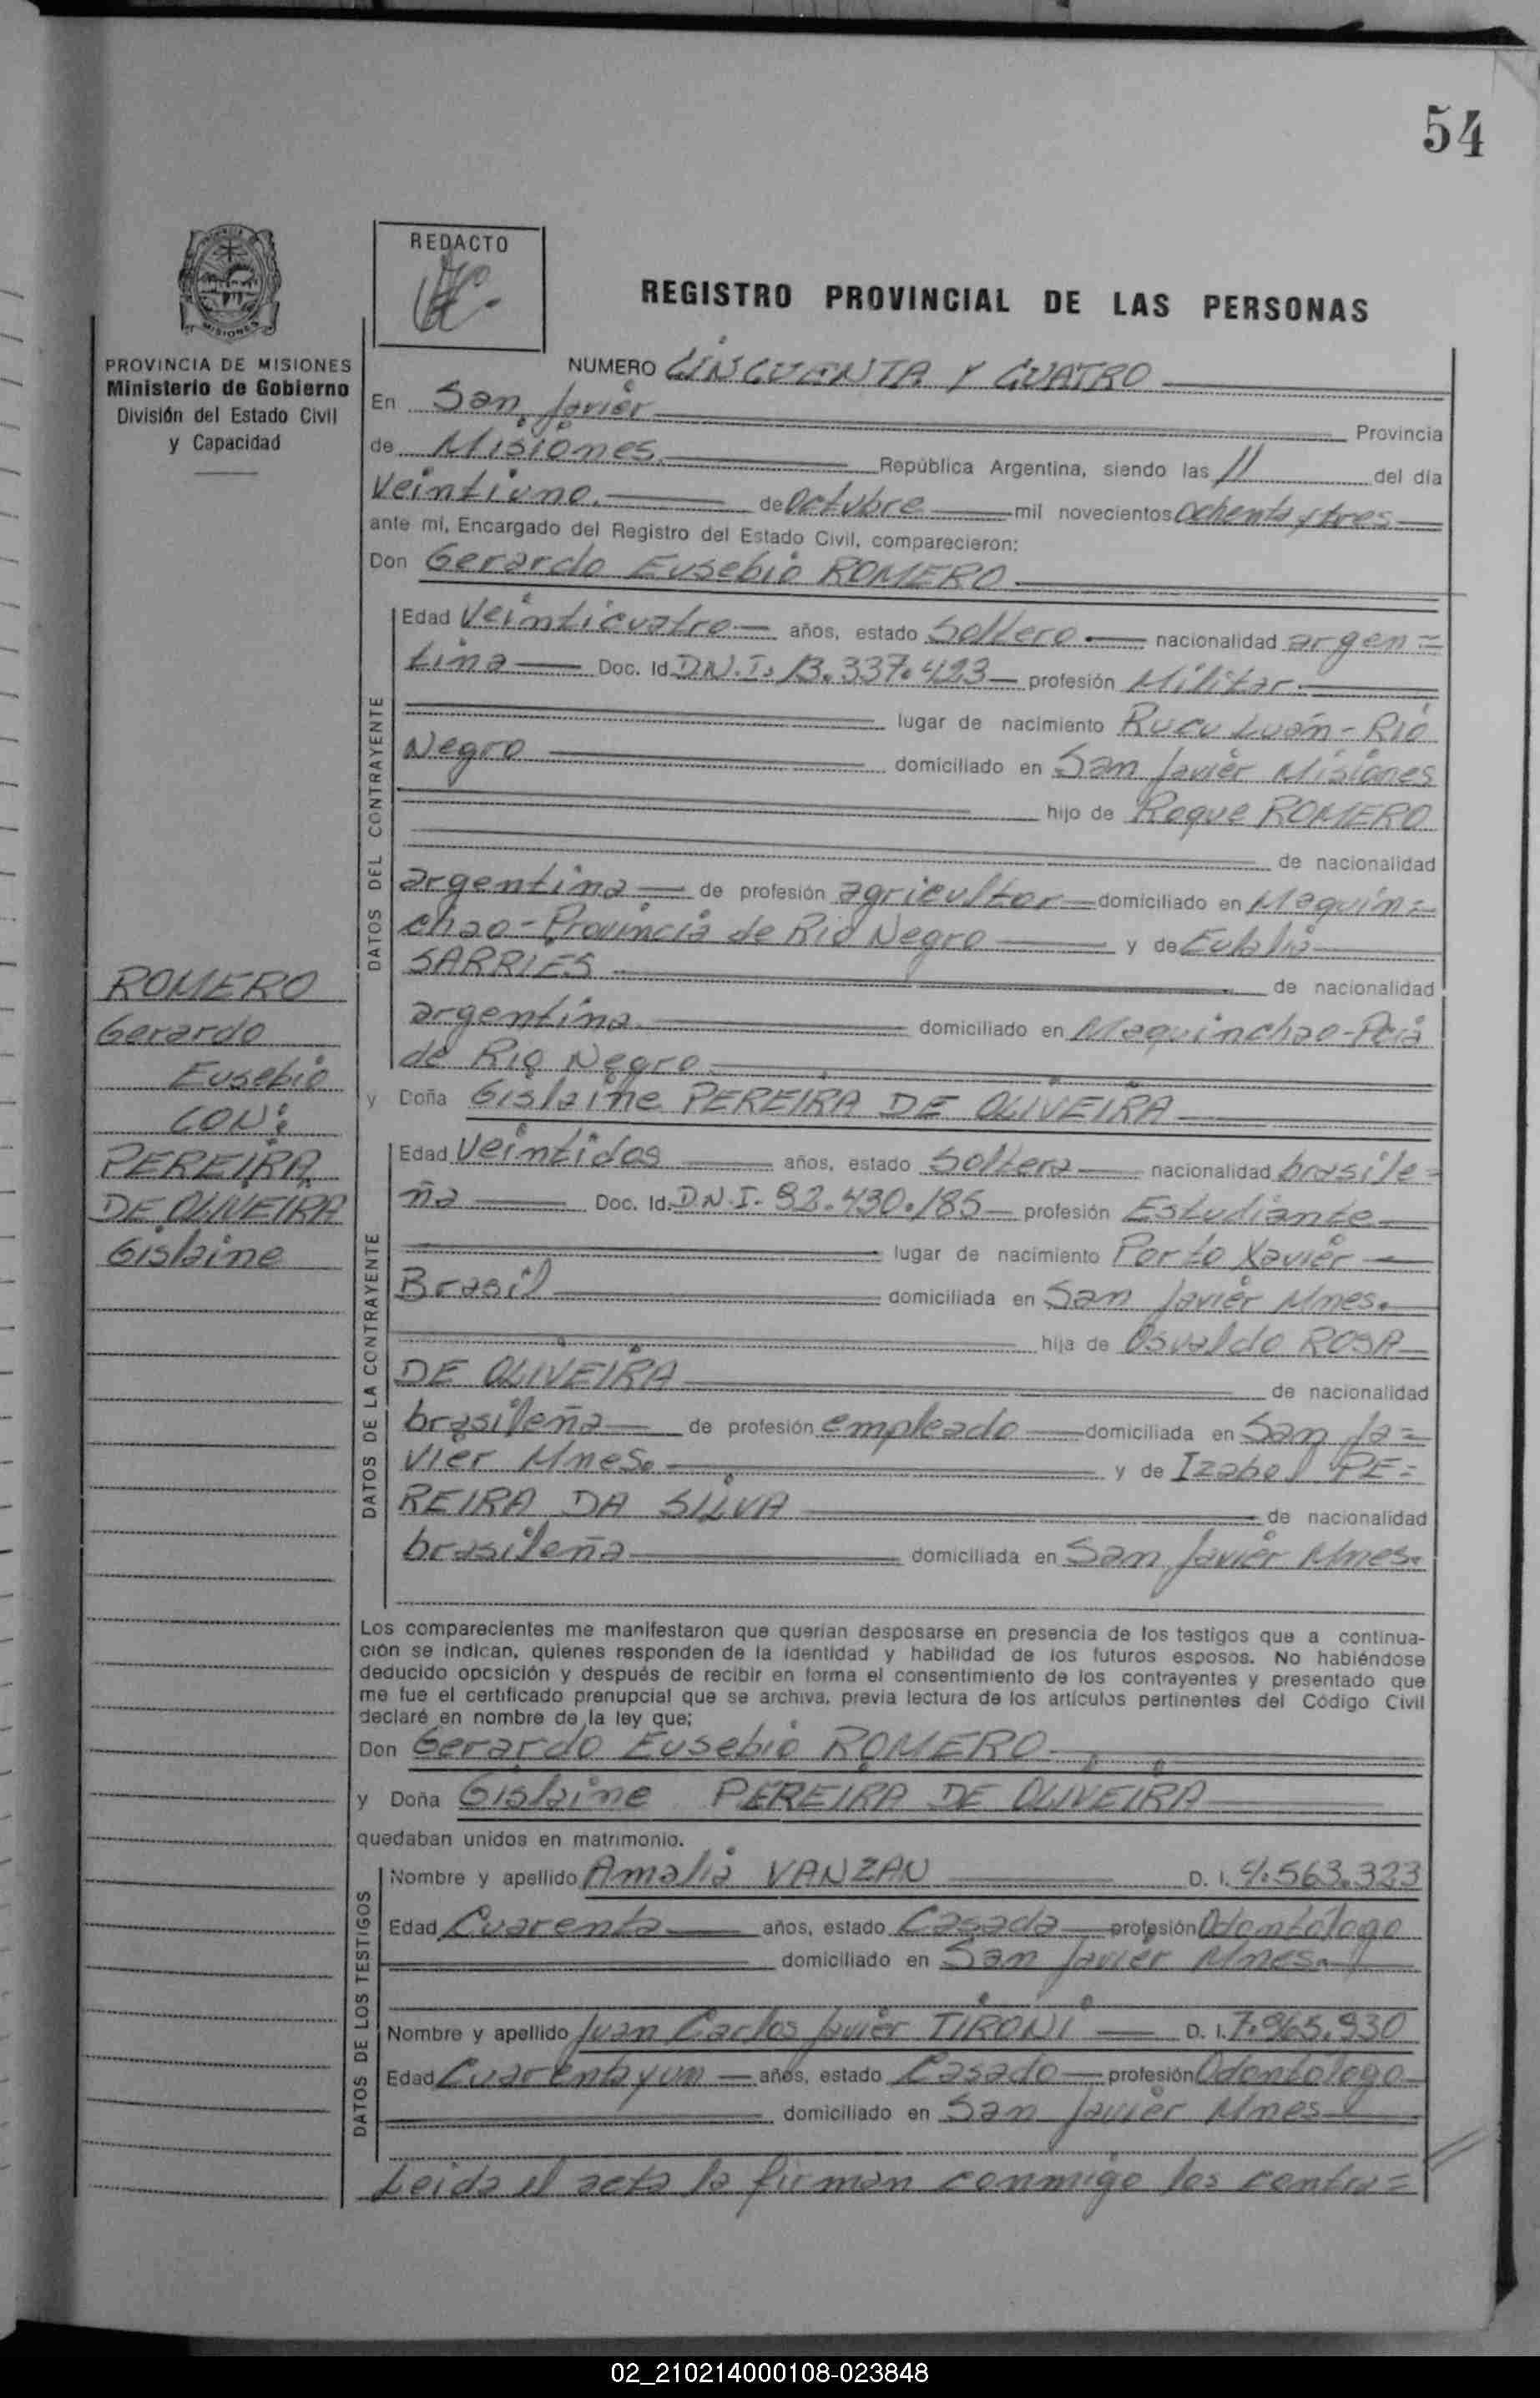 54
REDACTO
REGISTRO PROVINCIAL DE LAS PERSONAS
PROVINCIA DE MISIONES
Ministerio de Gobierno
División del Estado Civil
y Capacidad
NUMERO CINCUENTA Y CUATRO
En San Javier Provincia
de Misiones República Argentina, siendo las 11 del día
veintiuno de Octubre mil novecientos ochenta y tres
ante mí, Encargado del Registro del Estado Civil, comparecieron:
Don Gerardo Eusebio ROMERO
DATOS DEL CONTRAYENTE
Edad Veinticuatro años, estado Soltero nacionalidad argen=
tina Doc. Id. D.N.I. 13.337.423 profesión Militar
lugar de nacimiento Rucu Luán - Río
Negro domiciliado en San Javier Misiones
hijo de Roque ROMERO
de nacionalidad
argentina de profesión agricultor domiciliado en Maquin=
chao - Provincia de Rio Negro y de Eulalia
SARRIES de nacionalidad
argentina domiciliado en Maquinchao - Pcia
de Rio Negro
ROMERO
Gerardo
Eusebio
CON:
PEREIRA
DE OLIVEIRA
Gislaine
y Doña Gislaine PEREIRA DE OLIVEIRA
DATOS DE LA CONTRAYENTE
Edad Veintidos años, estado Soltera nacionalidad brasile=
ña Doc. Id. D.N.I. 92.430.185 profesión Estudiante
lugar de nacimiento Porto Xavier
Brasil domiciliada en San Javier Mnes.
hija de Osvaldo ROSA
DE OLIVEIRA de nacionalidad
brasileña de profesión empleado domiciliada en San Ja=
vier Mnes. y de Izabel PE=
REIRA DA SILVA de nacionalidad
brasileña domiciliada en San Javier Mnes.
Los comparecientes me manifestaron que querían desposarse en presencia de los testigos que a continua-
ción se indican, quienes responden de la identidad y habilidad de los futuros esposos. No habiéndose
deducido oposición y después de recibir en forma el consentimiento de los contrayentes y presentado que
me fue el certificado prenupcial que se archiva, previa lectura de los artículos pertinentes del Código Civil
declaré en nombre de la ley que;
Don Gerardo Eusebio ROMERO
y Doña Gislaine PEREIRA DE OLIVEIRA
quedaban unidos en matrimonio.
DATOS DE LOS TESTIGOS
Nombre y apellido Amalia VANZAN D. I. 4.563.323
Edad Cuarenta años, estado Casada profesión Odontólogo
domiciliado en San Javier Mnes.
Nombre y apellido Juan Carlos Javier TIRONI D. I. 7.965.930
Edad Cuarenta y un años, estado Casado profesión Odontólogo
domiciliado en San Javier Mnes
Leida el acta la firman conmigo los contra=
02_210214000108-023848